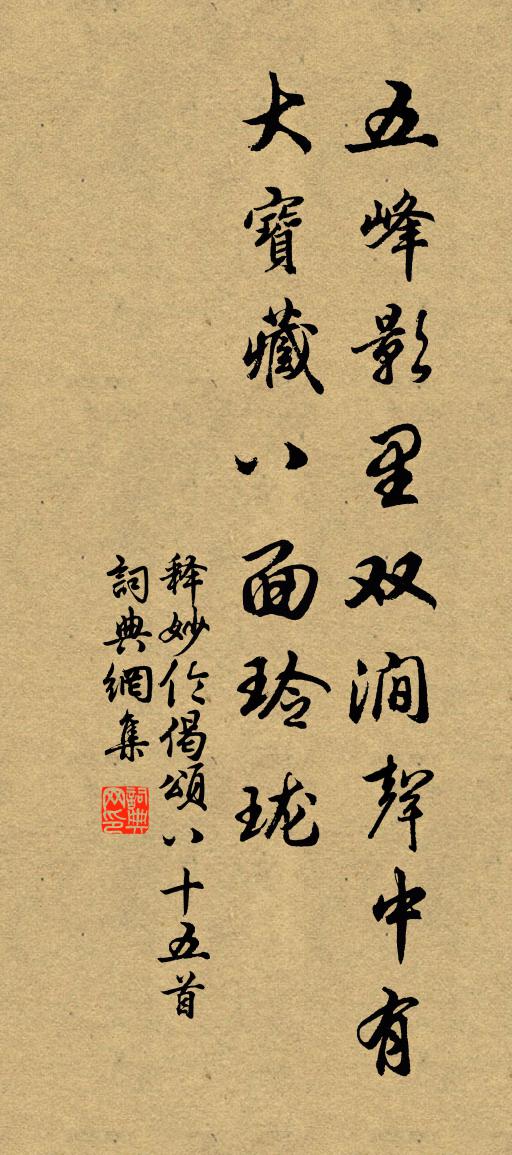 五峰影里双涧聲中有
大寶藏八面玲珑
释妙伦偈頌八十五首
詞典網集
詞典网印